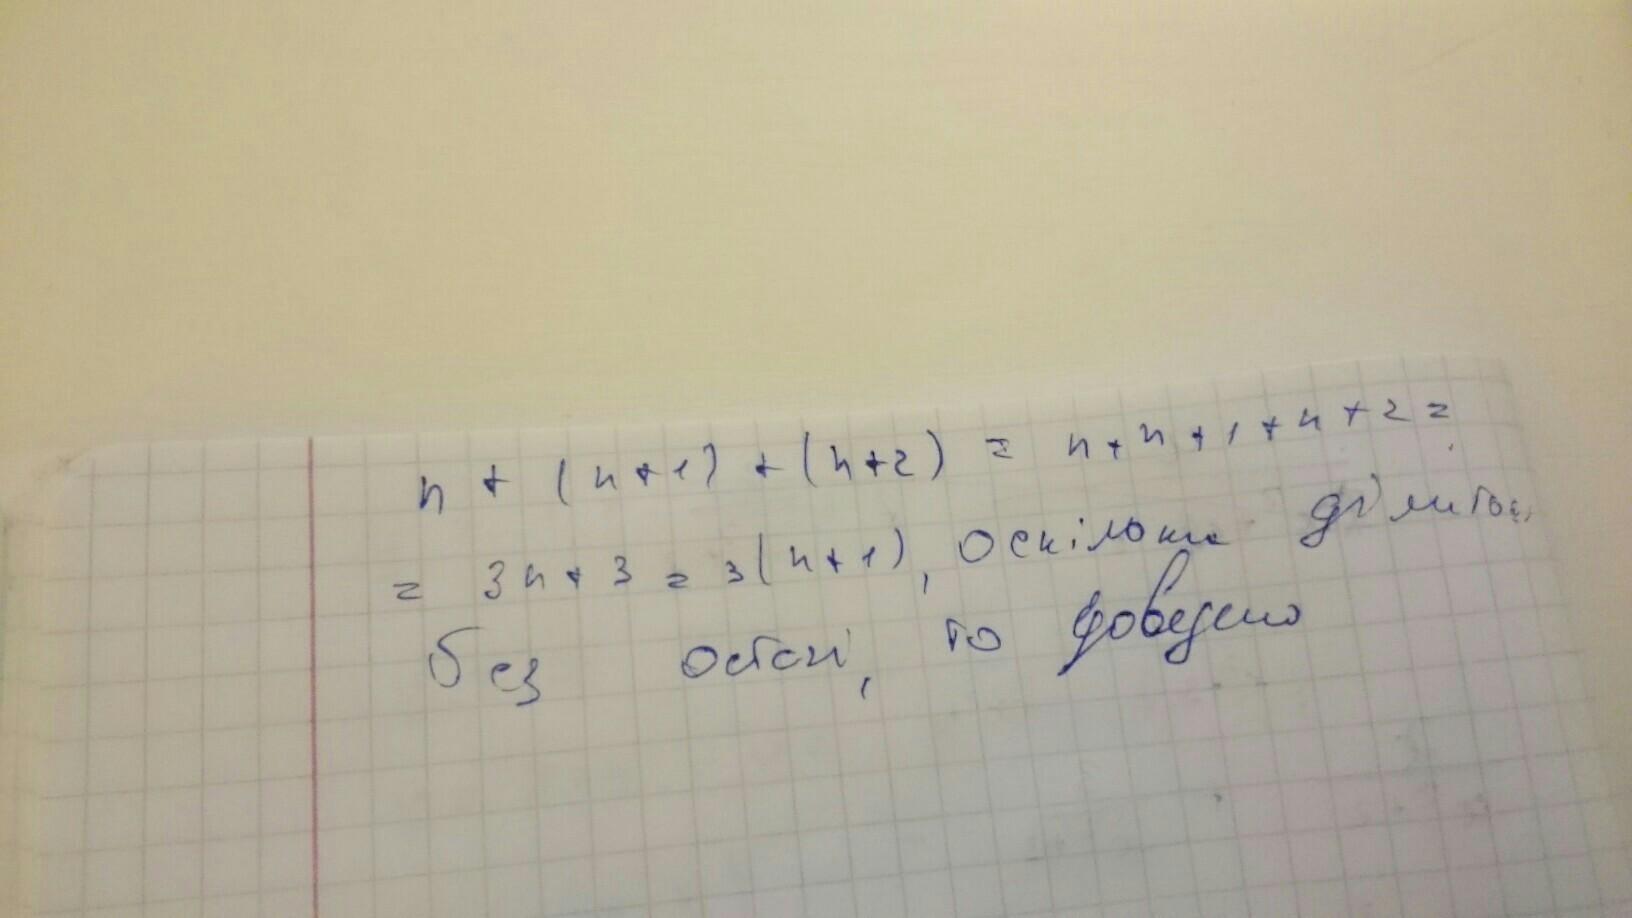 n + (n+1) + (n+2) = n+n+1+n+2=
= 3n+3=3(n+1), оскільки ділиться
без остачі, то доведено